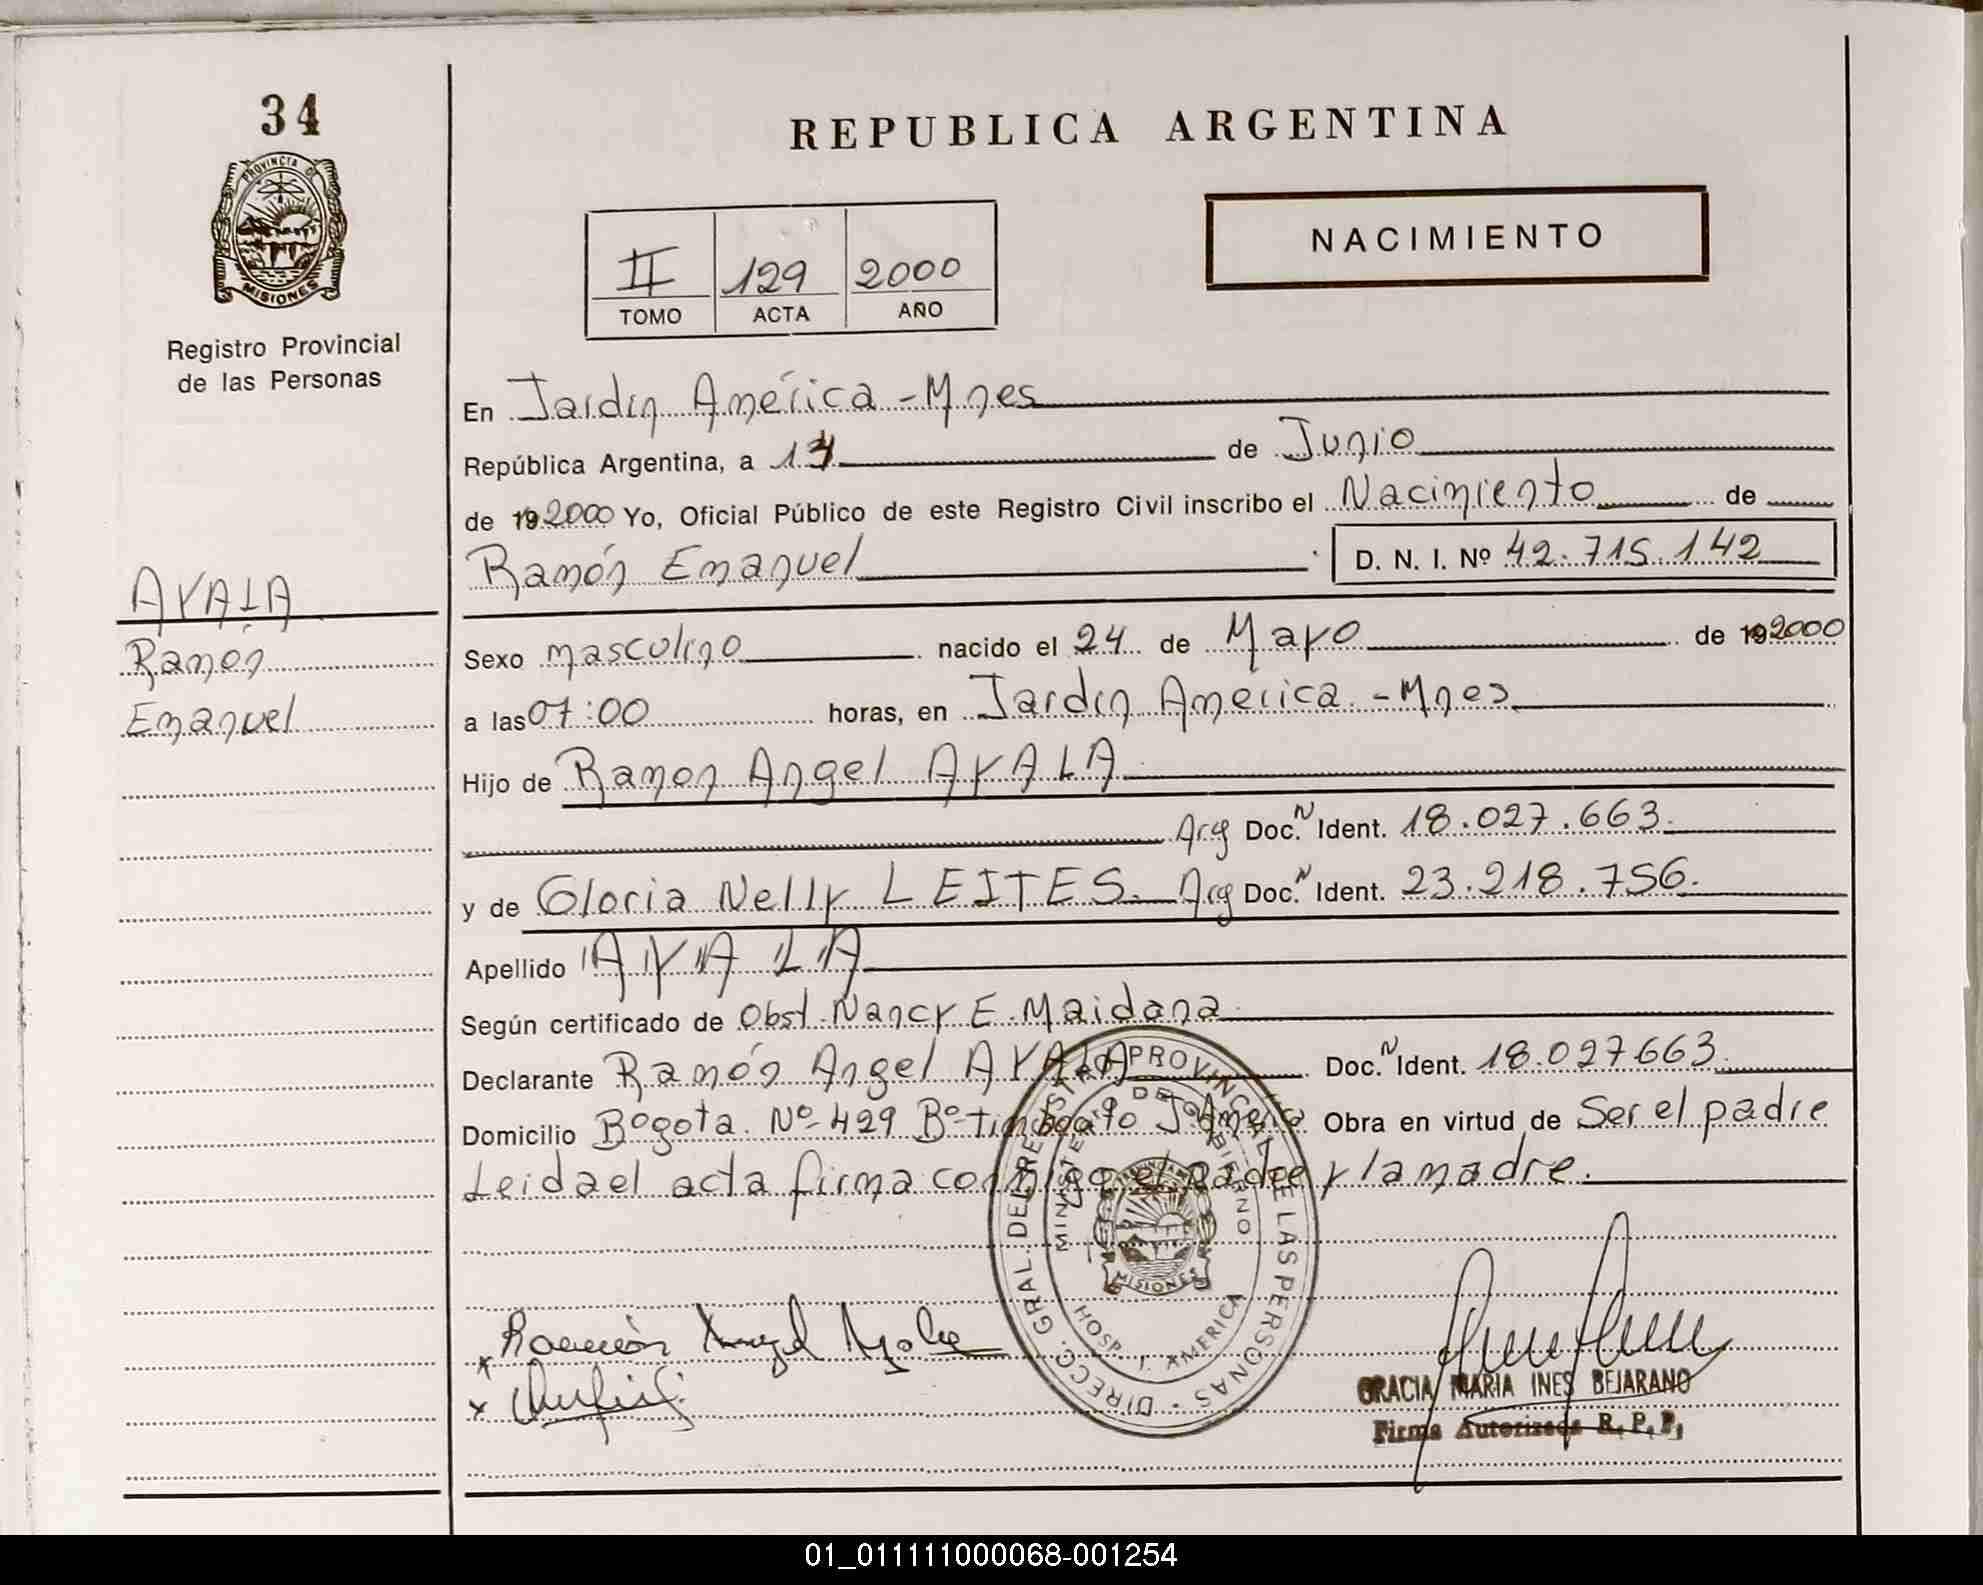 34
PROVINCIA DE
MISIONES
Registro Provincial
de las Personas
AYALA
Ramón
Emanuel
REPUBLICA ARGENTINA
II 129 2000
TOMO ACTA AÑO
NACIMIENTO
En Jardin América - Mnes
República Argentina, a de Junio
de 19 2000 Yo, Oficial Público de este Registro Civil inscribo el Nacimiento de
Ramón Emanuel D. N. I. Nº 42.715.142
Sexo masculino nacido el 24 de Mayo de 19 2000
a las 07:00 horas, en Jardin America - Mnes
Hijo de Ramon Angel AYALA
Arg Doc. N Ident. 18.027.663.
y de Gloria Nelly LEITES. Arg Doc. N Ident. 23.218.756.
Apellido "A"Y"A"L"A
Según certificado de Obst. Nancy E. Maidana
Declarante Ramón Angel AYALA Doc. N Ident. 18.027663.
Domicilio Bogota Nº 429 Bº Obra en virtud de Ser el padre
Leida el acta firma conmigo el padre y la madre.
DIRECC. GRAL. DEL REGISTRO PROVINCIAL DE LAS PERSONAS
MINISTERIO DE GOBIERNO
MISIONES
HOSP. J. AMERICA
x Ramón Angel Ayala
x
GRACIA MARIA INES BEJARANO
Firma Autorizada R. P. P.
01_011111000068-001254